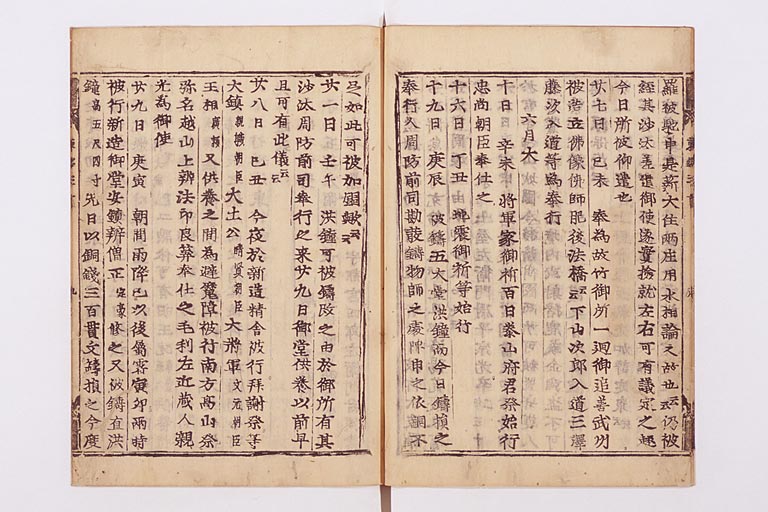 羅被馳申是薪大住兩庄用水相論之故也云云仍被
經其沙汰差遣御使遂實撿就左右可有議定之趣
今日所被仰遣也
廿七日 己未 奉為故竹御所一廻御追善武州
被造立佛像佛師肥後法橋云云下山次郎入道三澤
藤次入道等為奉行
六月大
十日 辛未 將軍家御祈百日泰山府君祭始行
忠尚朝臣奉仕之
十六日 丁丑 御祈等始行
十九日 庚辰 被鑄五大堂洪鐘而今日鑄損之
奉行人周防前司勘發鑄物師之處陳申之依銅不
足如此可被加歟云云
廿一日 壬午 洪鐘可被鑄改之由於御所有其
沙汰周防前司奉行之來廿九日御堂供養以前早
且可有此儀云云
廿八日 己丑 今夜於新造精舍被行拜謝祭等
大鎮親職朝臣 大土公晴賢朝臣 大將軍文元朝臣
王相廣資 又供養之間為避魔障被行南方高山祭
弥名越山上辨法印良算奉仕之毛利左近藏人親
光為御使
廿九日 庚寅 朝間雨降巳以後屬霽寅卯兩時
被行新造御堂安鎮辨僧正定豪修之又被鑄直洪
鐘高五尺四寸 先日以銅錢三百貫文鑄損之今度